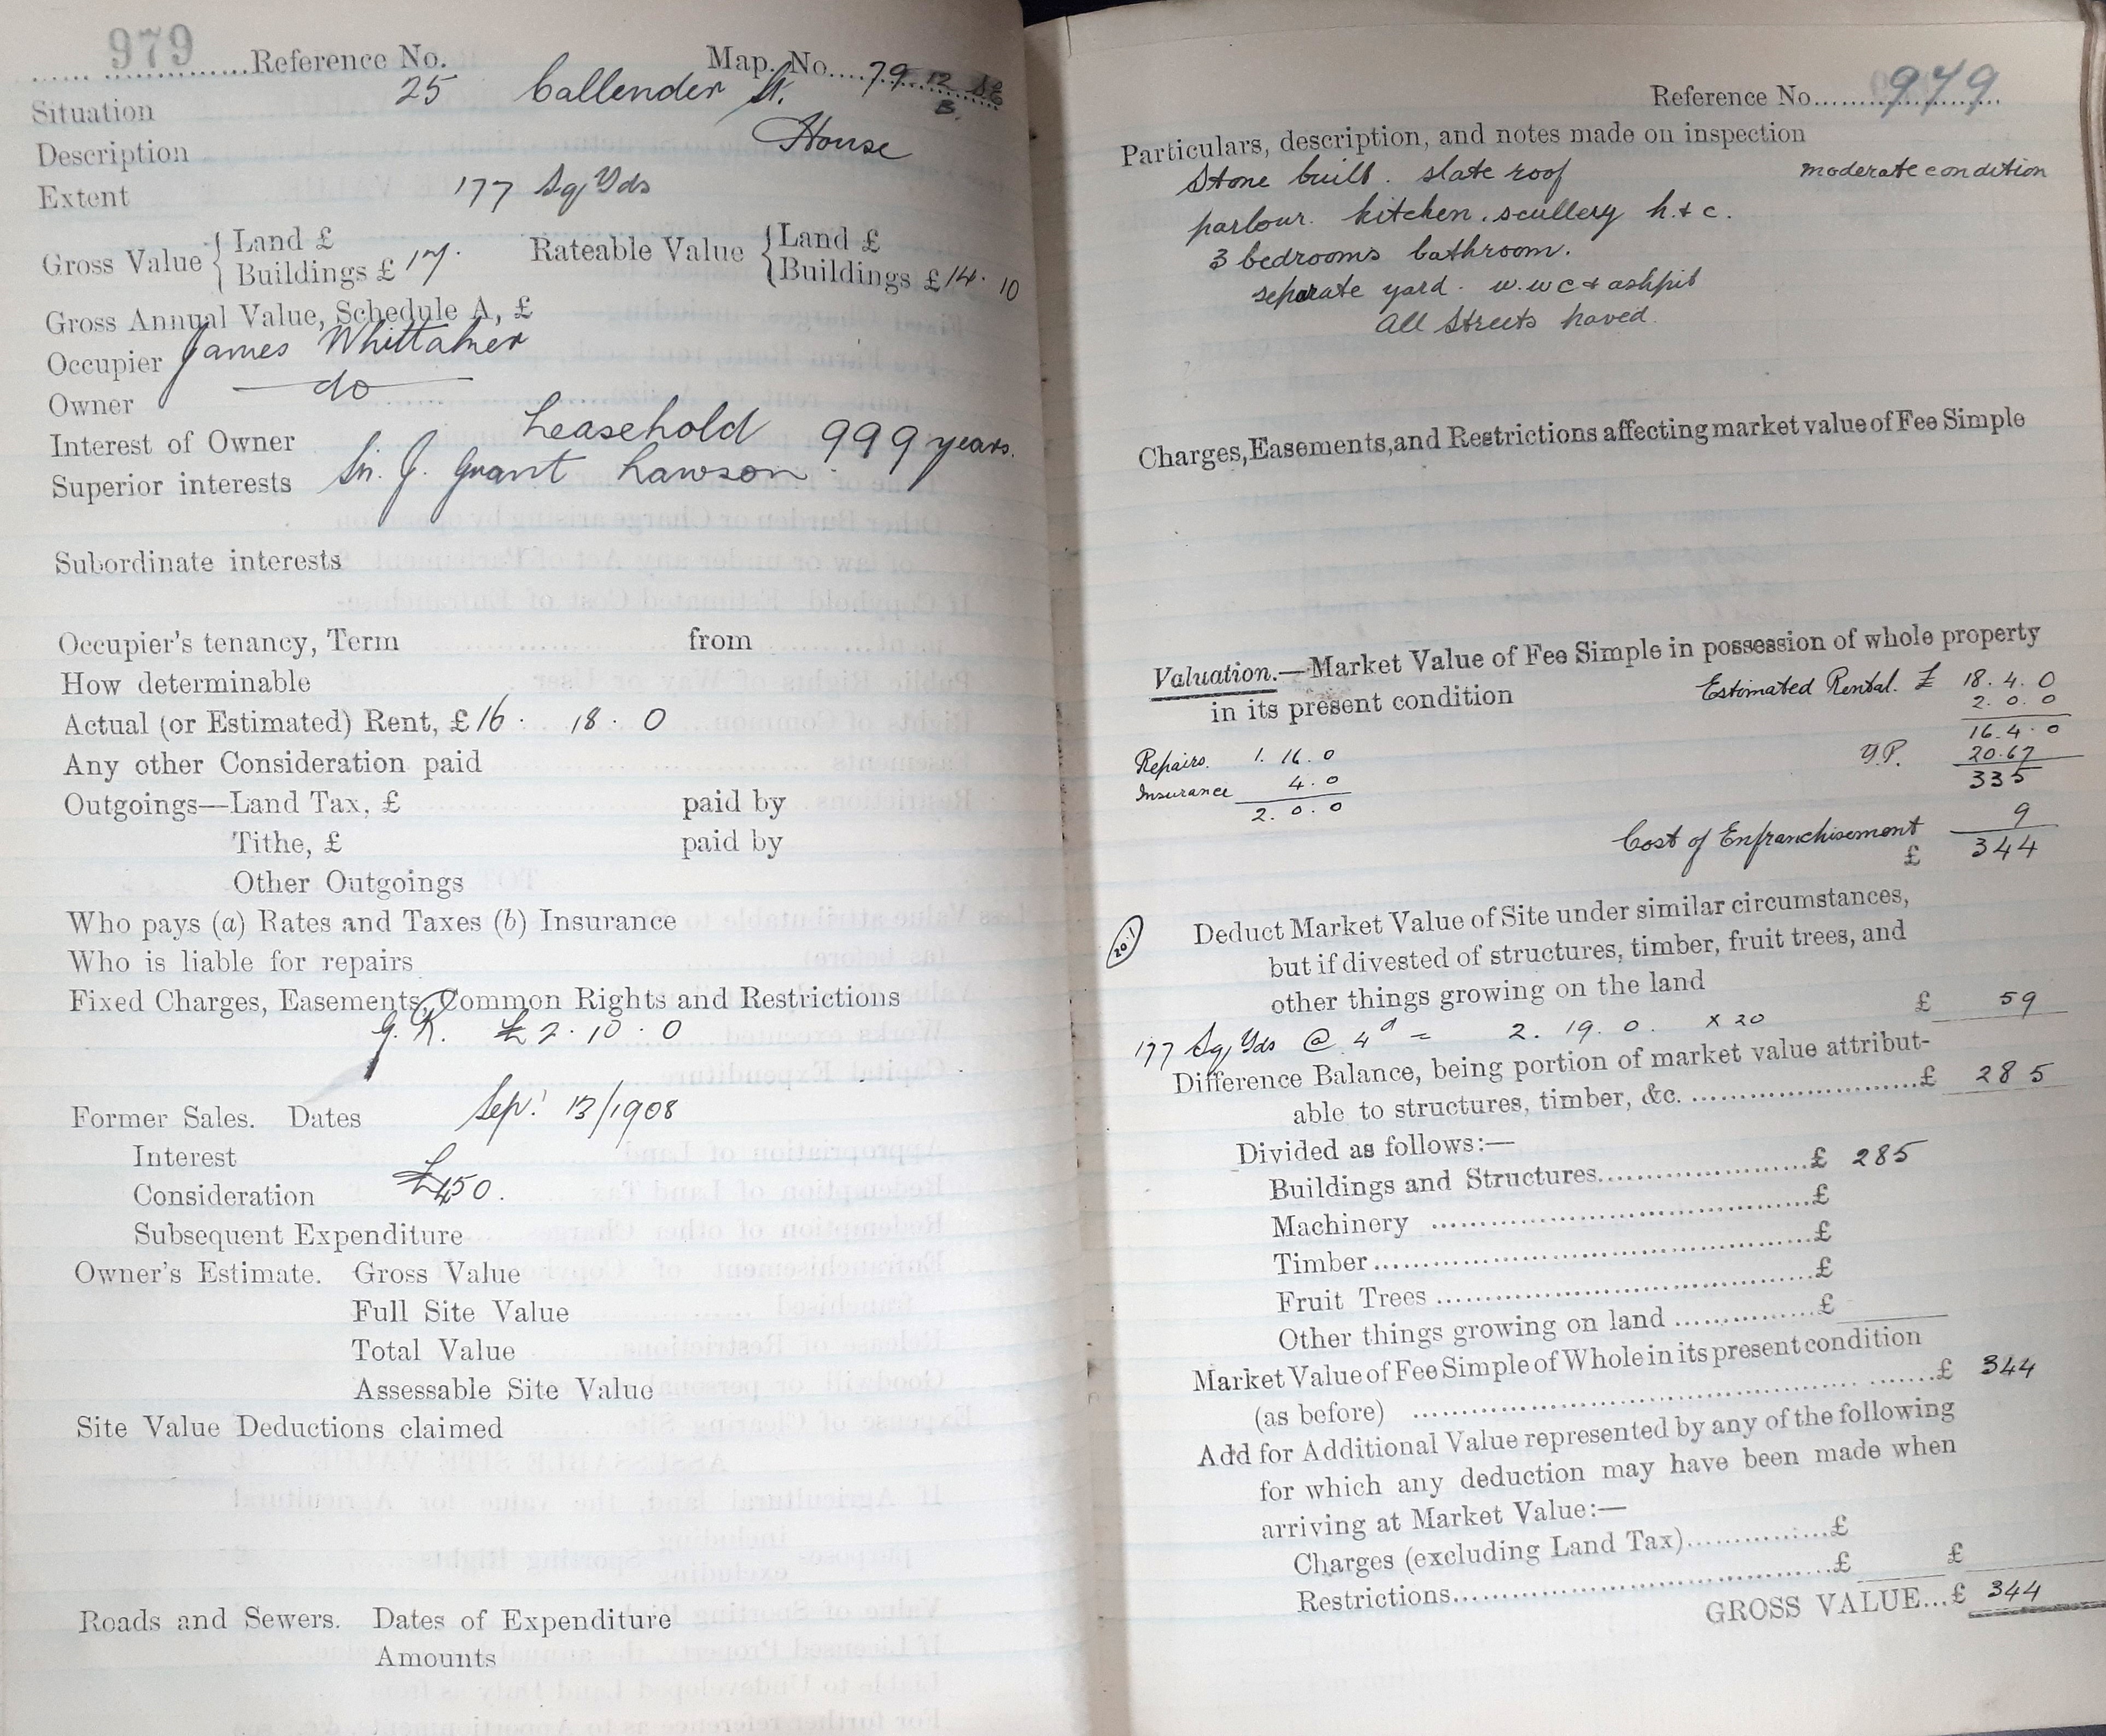 979
Reference No.
Map. No. 79 12 SE
B.
Situation 25 Callender St.
Description House
Extent 177 Sq Yds
Gross Value { Land £
Buildings £ 17.
Rateable Value { Land £
Buildings £ 14. 10
Gross Annual Value, Schedule A, £
Occupier James Whittaker
Owner do
Interest of Owner Leasehold 999 years.
Superior interests Sir. J. Grant Lawson
Subordinate interests
Occupier's tenancy, Term from
How determinable
Actual (or Estimated) Rent, £ 16. 18. 0
Any other Consideration paid
Outgoings—Land Tax, £ paid by
Tithe, £ paid by
Other Outgoings
Who pays (a) Rates and Taxes (b) Insurance
Who is liable for repairs
Fixed Charges, Easements, Common Rights and Restrictions
G. R. £2. 10. 0
Former Sales. Dates Sep. 13/1908
Interest
Consideration £450.
Subsequent Expenditure
Owner's Estimate. Gross Value
Full Site Value
Total Value
Assessable Site Value
Site Value Deductions claimed
Roads and Sewers. Dates of Expenditure
Amounts
Reference No. 979
Particulars, description, and notes made on inspection
Stone built. slate roof moderate condition
parlour. kitchen. scullery h. & c.
3 bedrooms bathroom.
separate yard. w.w c & ashpit
All Streets paved.
Charges, Easements, and Restrictions affecting market value of Fee Simple
Valuation.—Market Value of Fee Simple in possession of whole property
in its present condition Estimated Rental. £ 18. 4. 0
2. 0. 0
16. 4. 0
Repairs. 1. 16. 0 Y.P. 20.67
Insurance 4. 0 335
2. 0. 0
Cost of Enfranchisement 9
£ 344
20.1
Deduct Market Value of Site under similar circumstances,
but if divested of structures, timber, fruit trees, and
other things growing on the land £ 59
177 Sq Yds @ 4d = 2. 19. 0. x 20
Difference Balance, being portion of market value attribut-
able to structures, timber, &c. £ 285
Divided as follows:—
Buildings and Structures £ 285
Machinery £
Timber £
Fruit Trees £
Other things growing on land £
Market Value of Fee Simple of Whole in its present condition
(as before) £ 344
Add for Additional Value represented by any of the following
for which any deduction may have been made when
arriving at Market Value:—
Charges (excluding Land Tax) £
Restrictions £ £
GROSS VALUE...£ 344